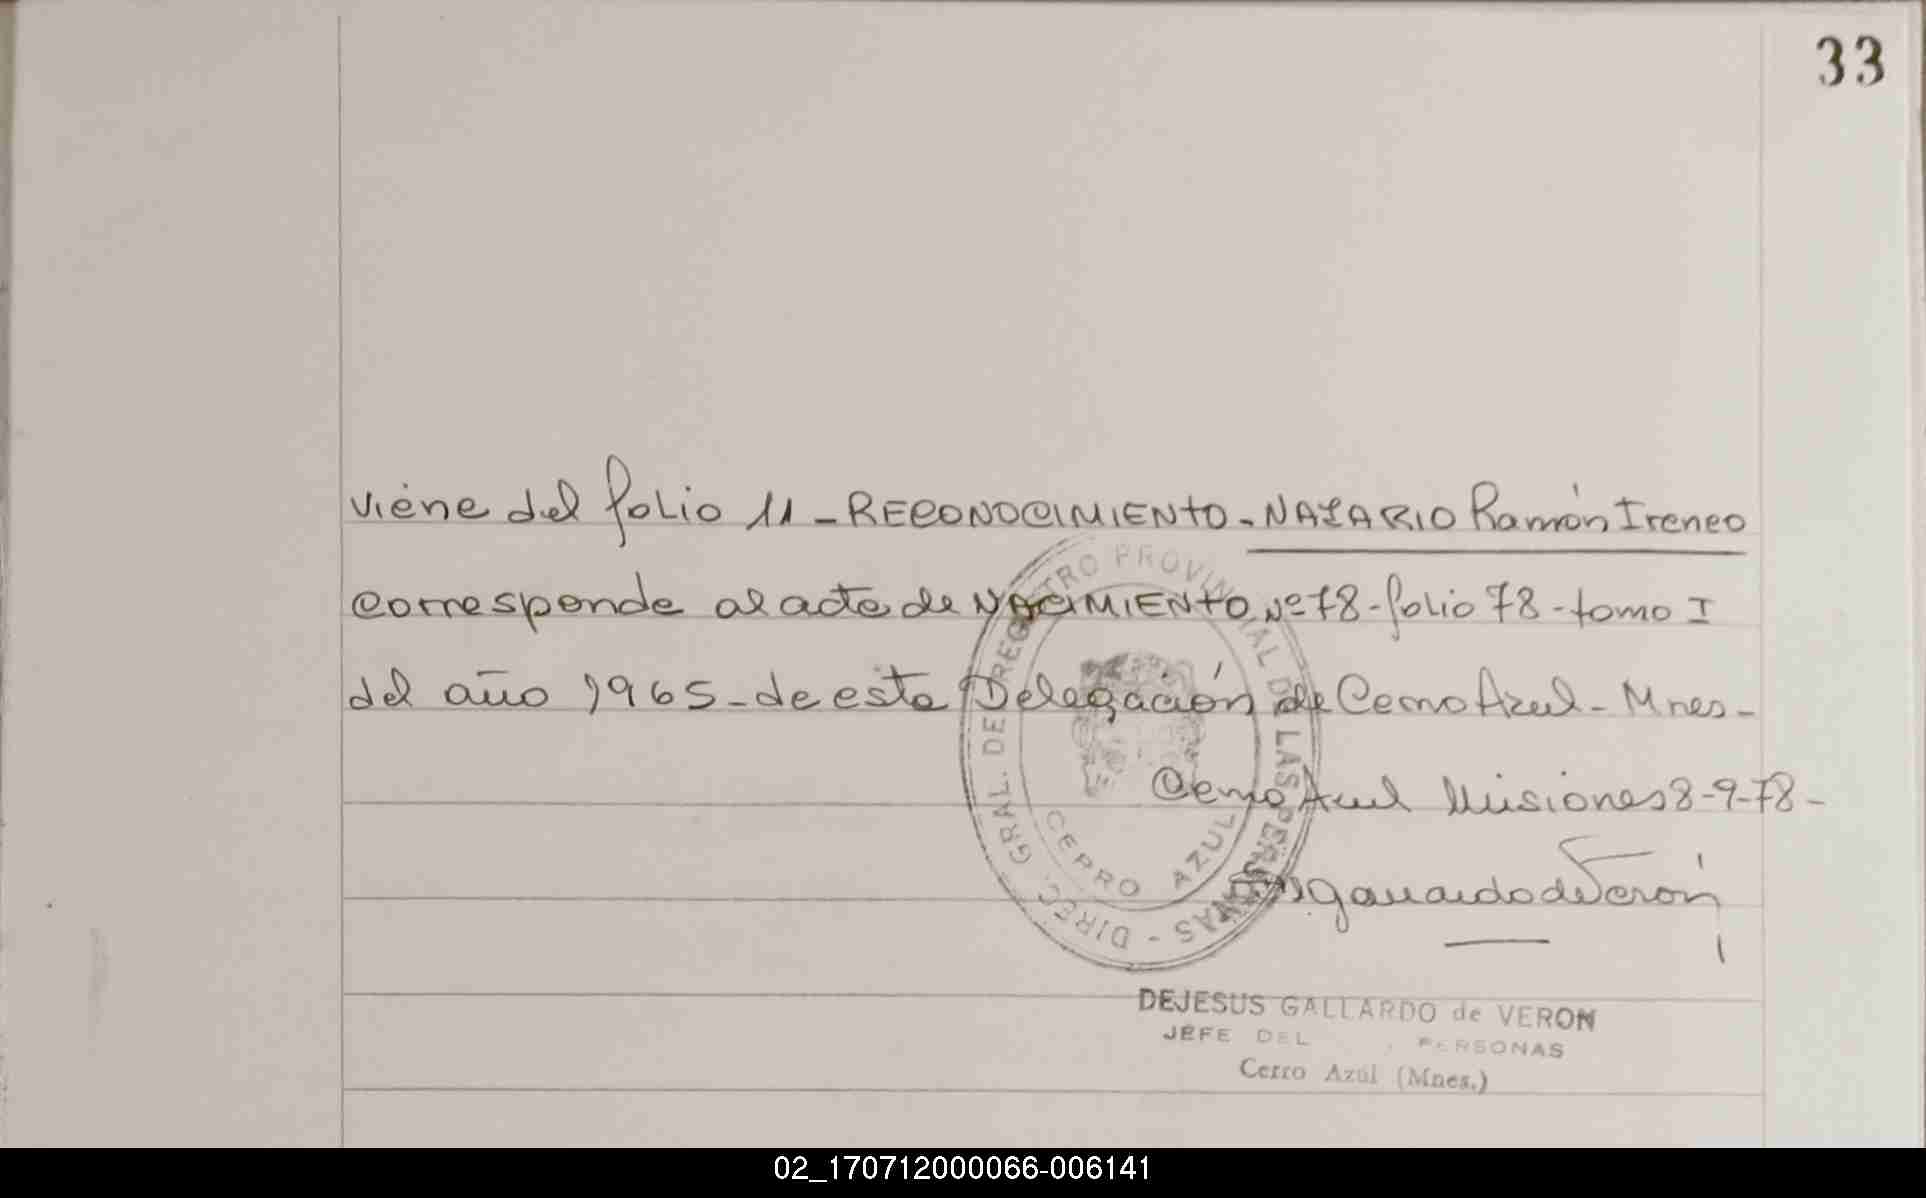 33
viene del folio 11 - RECONOCIMIENTO - NAZARIO Ramón Ireneo
corresponde al acta de NACIMIENTO Nº 78 - folio 78 - tomo I
del año 1965 - de esta Delegación de Cerro Azul - Mnes -
Cerro Azul Misiones 8-9-78 -
gallardo de Verón
DIREC. GRAL. DE REGISTRO PROVINCIAL DE LAS PERSONAS -
CERRO AZUL
DEJESUS GALLARDO de VERON
JEFE DEL PERSONAS
Cerro Azul (Mnes.)
02_170712000066-006141